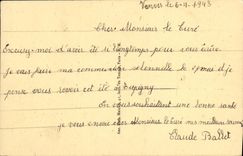 Vervins le 6-4-1943
Cher Monsieur le Curé
Excusez-moi d'avoir été si longtemps pour vous écrire
je vais faire ma communion solennelle le mai
pense vous revoir cet été à Eugny
En vous souhaitant une bonne santé
je vous envoie cher Monsieur le Curé mes meilleurs
Claude Ballet